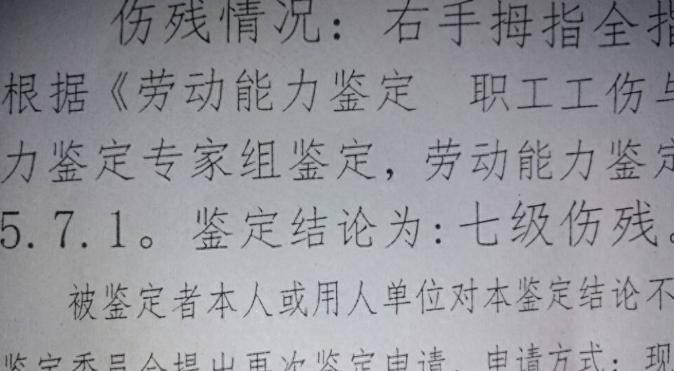 伤残情况：右手拇指全指
根据《劳动能力鉴定 职工工伤与
力鉴定专家组鉴定，劳动能力鉴定
5.7.1。鉴定结论为:七级伤残。
被鉴定者本人或用人单位对本鉴定结论不
鉴定委员会提出再次鉴定申请。申请方式：现